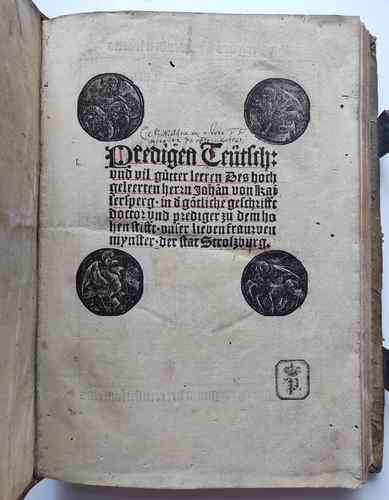 Predigen Teütsch:
vnd vil gůtter leeren Des hoch
geleerten herrn Johañ von Kai
sersperg. in d götliche geschrifft
doctor vnd prediger zu dem ho
hen stifft. vnser lieben frauwen
mynster. der stat Stroſzburg.
P